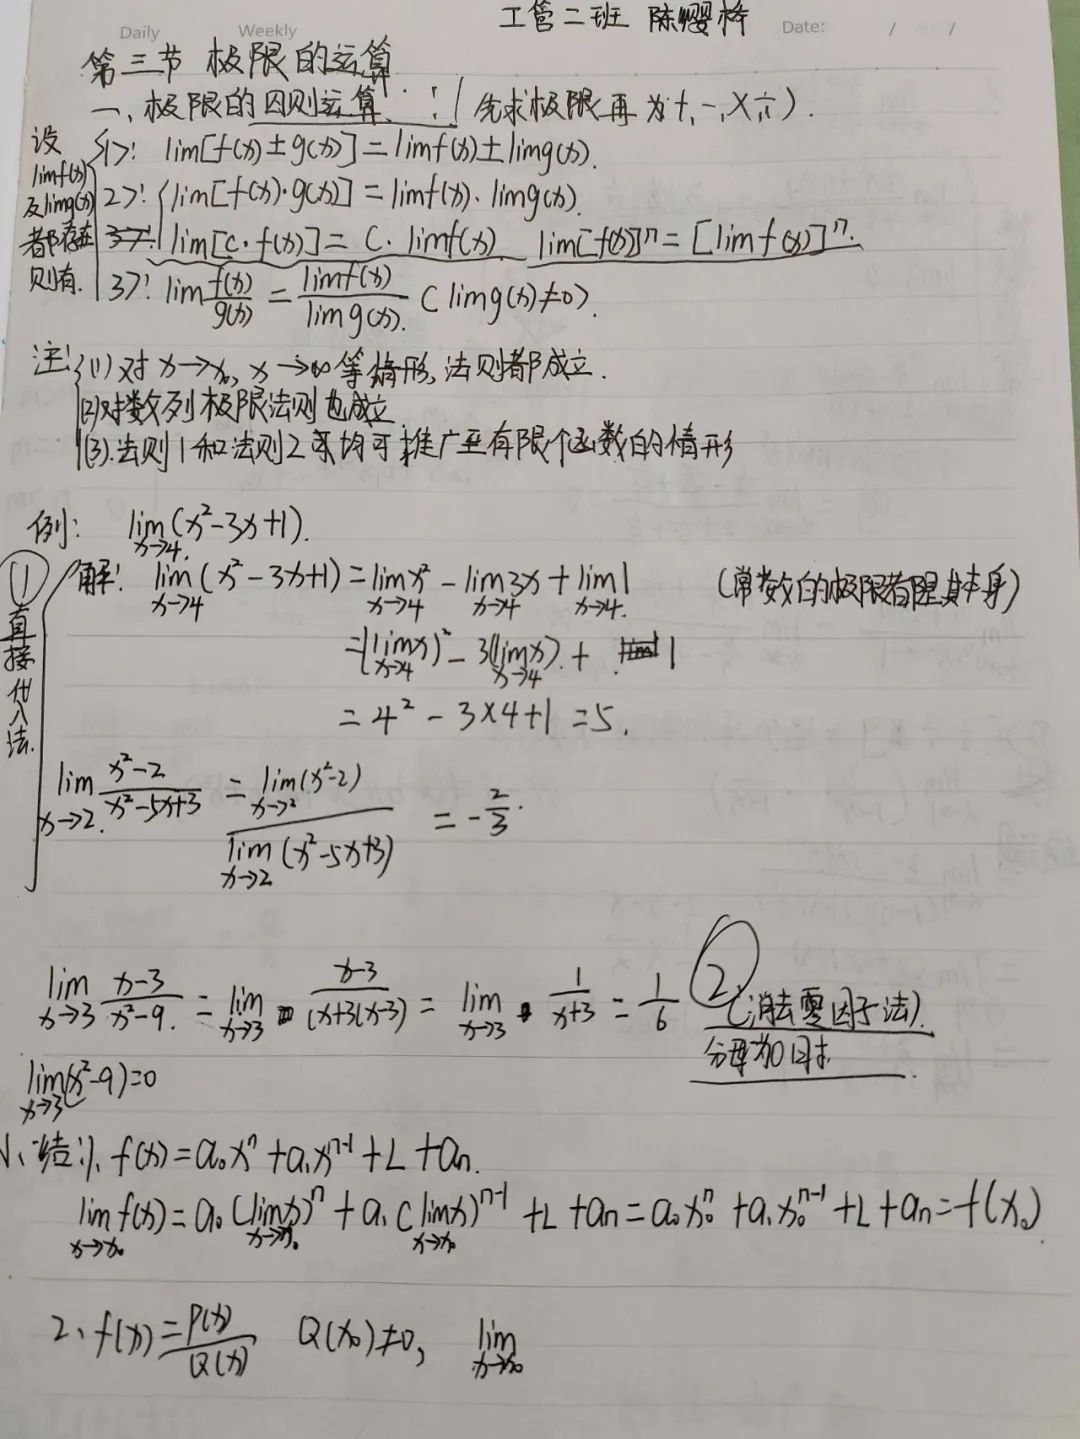 工管二班 陈樱桥
Daily Weekly Date: / /
第三节 极限的运算
一、极限的四则运算：(先求极限再为+,-,×,÷).
设limf(x)及limg(x)都存在则有.
<1>: lim[f(x)±g(x)]=limf(x)±limg(x).
2>: lim[f(x)·g(x)]=limf(x)·limg(x).
lim[C·f(x)]=C·limf(x) lim[f(x)]ⁿ=[limf(x)]ⁿ.
3>: lim f(x)/g(x) = limf(x)/limg(x). (limg(x)≠0).
注: (1) 对x→x₀, x→∞等情形,法则都成立.
(2)对数列极限法则也成立
(3).法则1和法则2均可推广至有限个函数的情形
例: lim x→4 (x²-3x+1).
① 直接代入法.
解: lim x→4 (x²-3x+1)=lim x→4 x² - lim x→4 3x + lim x→4 1 (常数的极限都是其本身)
=(lim x→4 x)² - 3(lim x→4 x) + 1
= 4² - 3×4+1 =5.
lim x→2 (x²-2)/(x²-5x+3) = lim x→2 (x²-2) / lim x→2 (x²-5x+3) = -2/3.
lim x→3 (x-3)/(x²-9) = lim x→3 (x-3)/(x+3)(x-3) = lim x→3 1/(x+3) = 1/6
② (消去零因子法).
分母为0时
lim x→3 (x²-9)=0
小结: 1、f(x)=a₀xⁿ+a₁xⁿ⁻¹+L+aₙ.
lim x→x₀ f(x)=a₀(lim x→x₀ x)ⁿ+a₁(lim x→x₀ x)ⁿ⁻¹+L+aₙ=a₀x₀ⁿ+a₁x₀ⁿ⁻¹+L+aₙ=f(x₀)
2、f(x)=P(x)/Q(x) Q(x₀)≠0, lim x→x₀